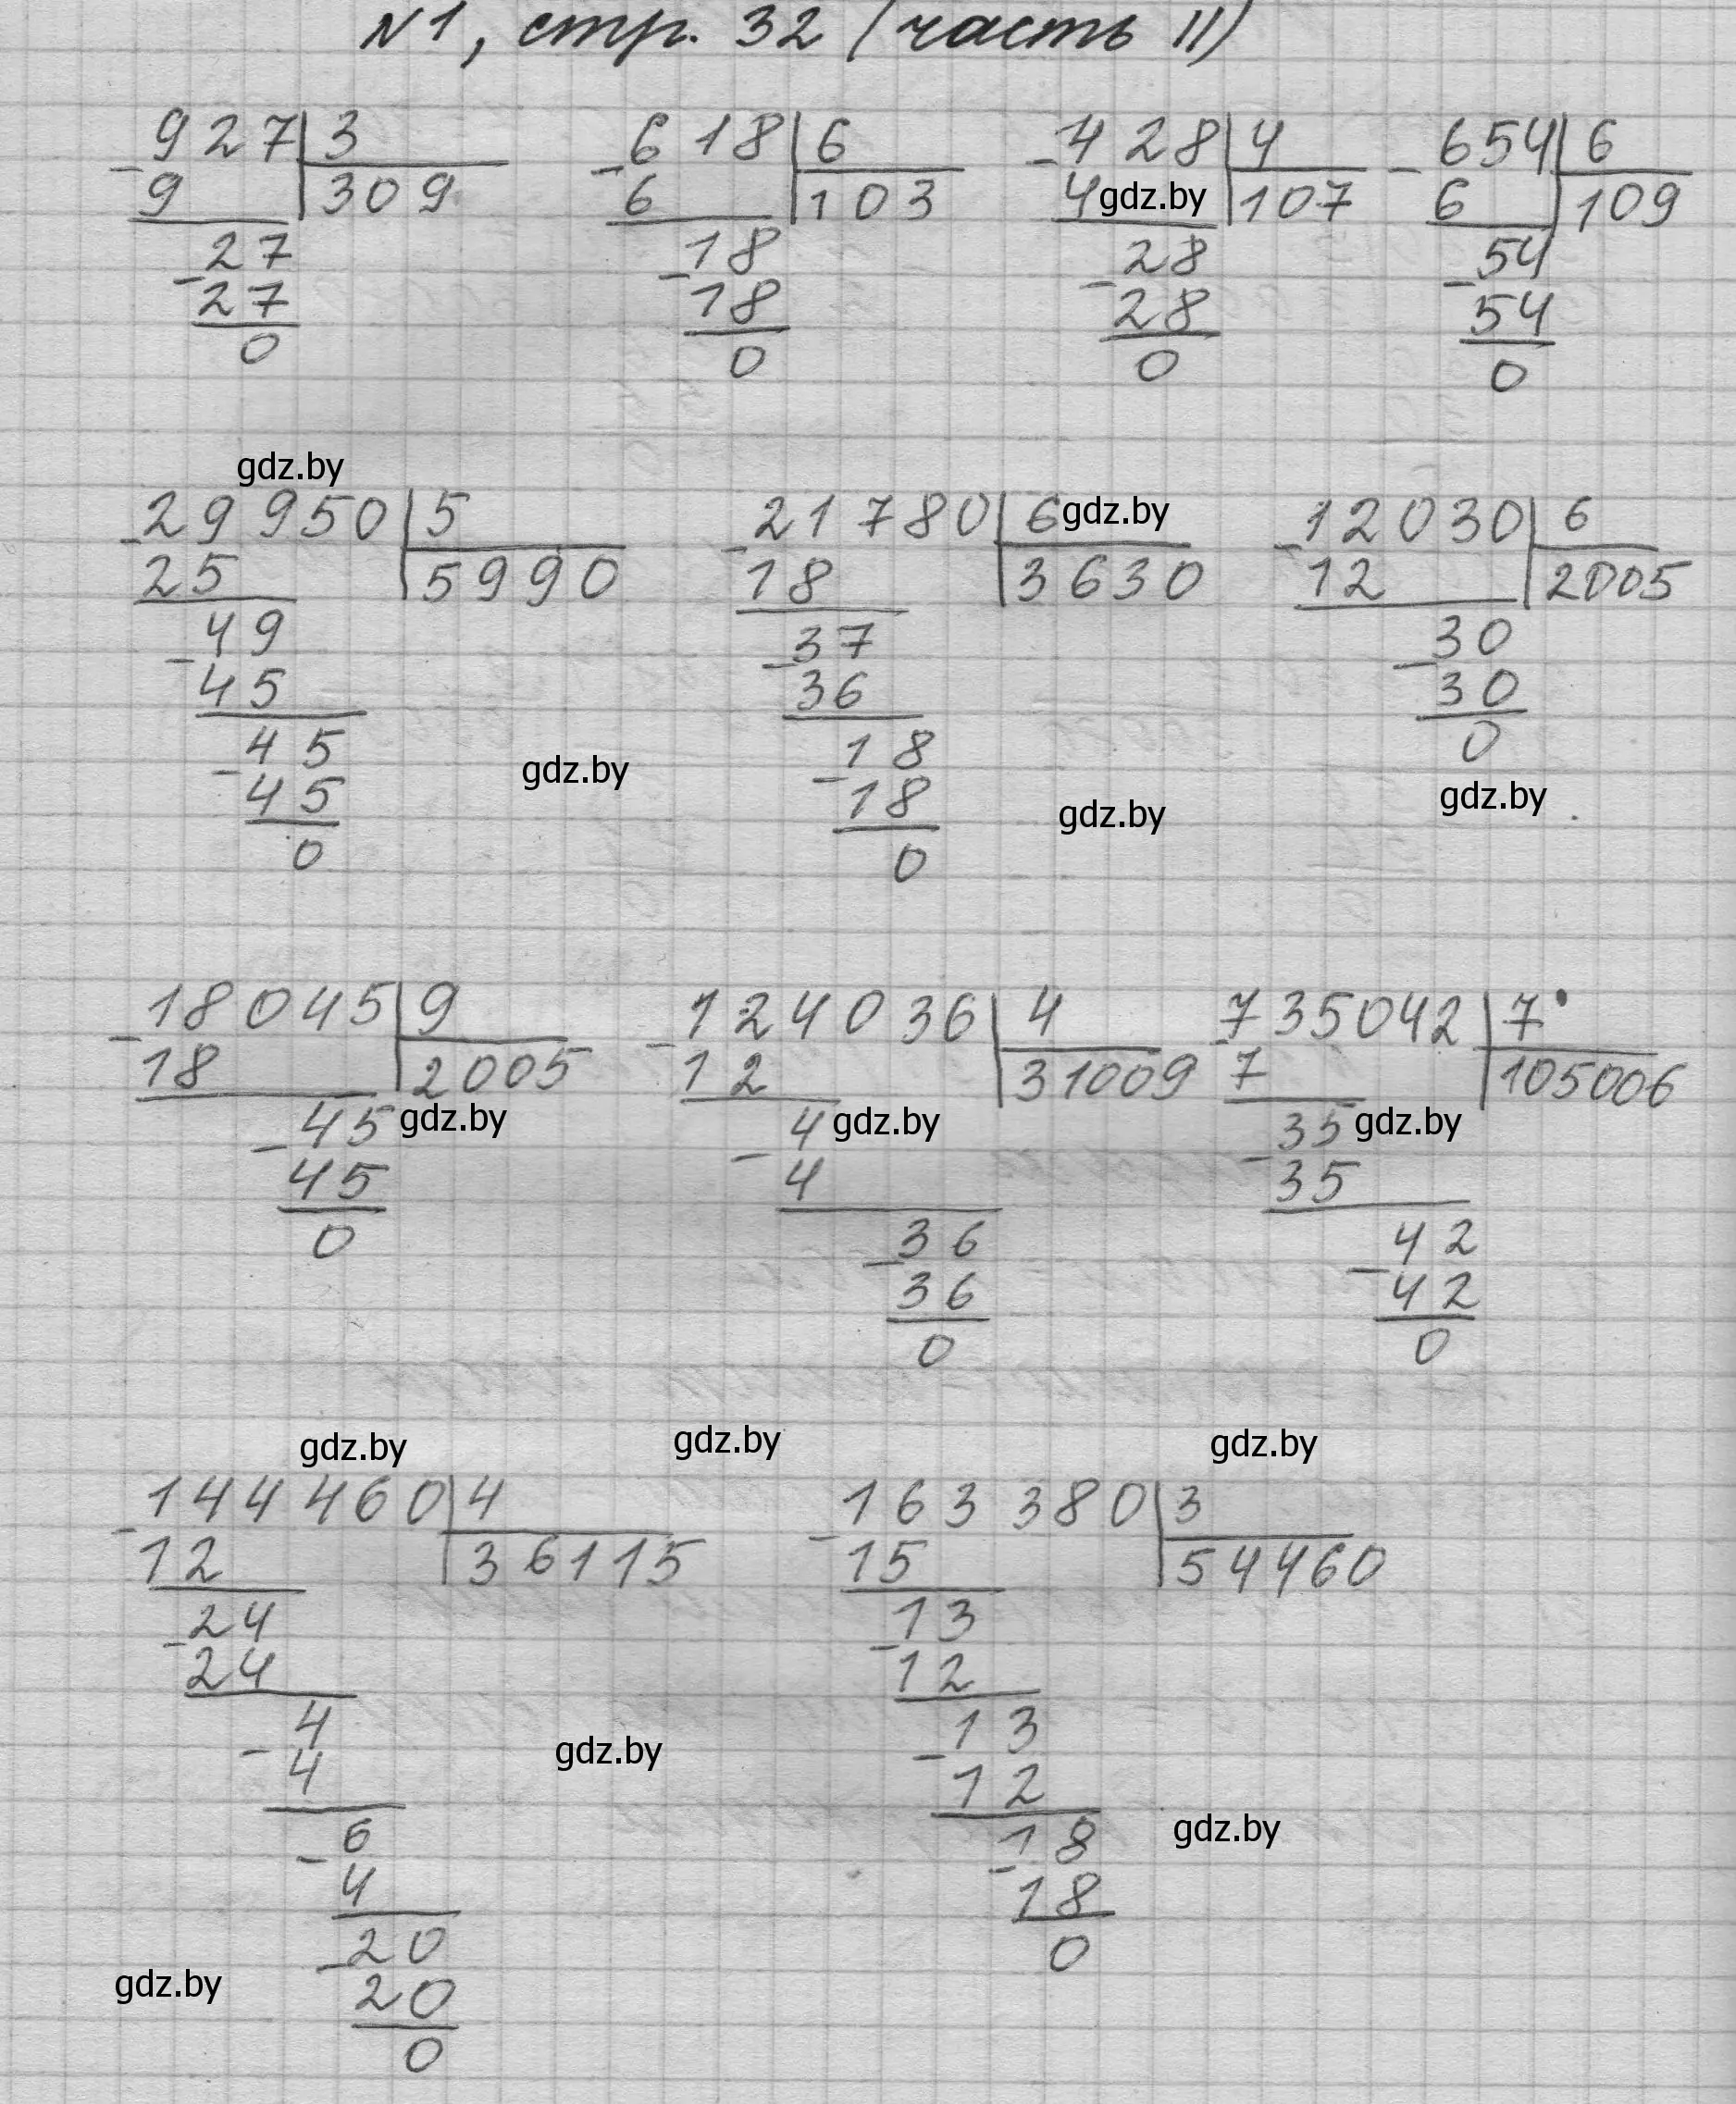 №1, стр. 32 (часть II)
927 | 3   618 | 6   428 | 4   654 | 6
-9 | 309   -6 | 103   -4 gdz.by | 107   -6 | 109
27   18   28   54
-27   -18   -28   -54
0   0   0   0
gdz.by
29950 | 5   21780 | 6 gdz.by   12030 | 6
-25 | 5990   -18 | 3630   -12 | 2005
49   37   30
-45   -36   -30
45   18   0
gdz.by
-45   -18   gdz.by   gdz.by
0   0
18045 | 9   124036 | 4   735042 | 7
-18 | 2005   -12 | 31009   -7 | 105006
45 gdz.by   4 gdz.by   35 gdz.by
-45   -4   -35
0   36   42
-36   -42
0   0
gdz.by   gdz.by   gdz.by
144460 | 4   163380 | 3
-12 | 36115   -15 | 54460
24   13
-24   -12
4   13
gdz.by
-4   -12
6   18   gdz.by
-4   -18
20   0
gdz.by
-20
0